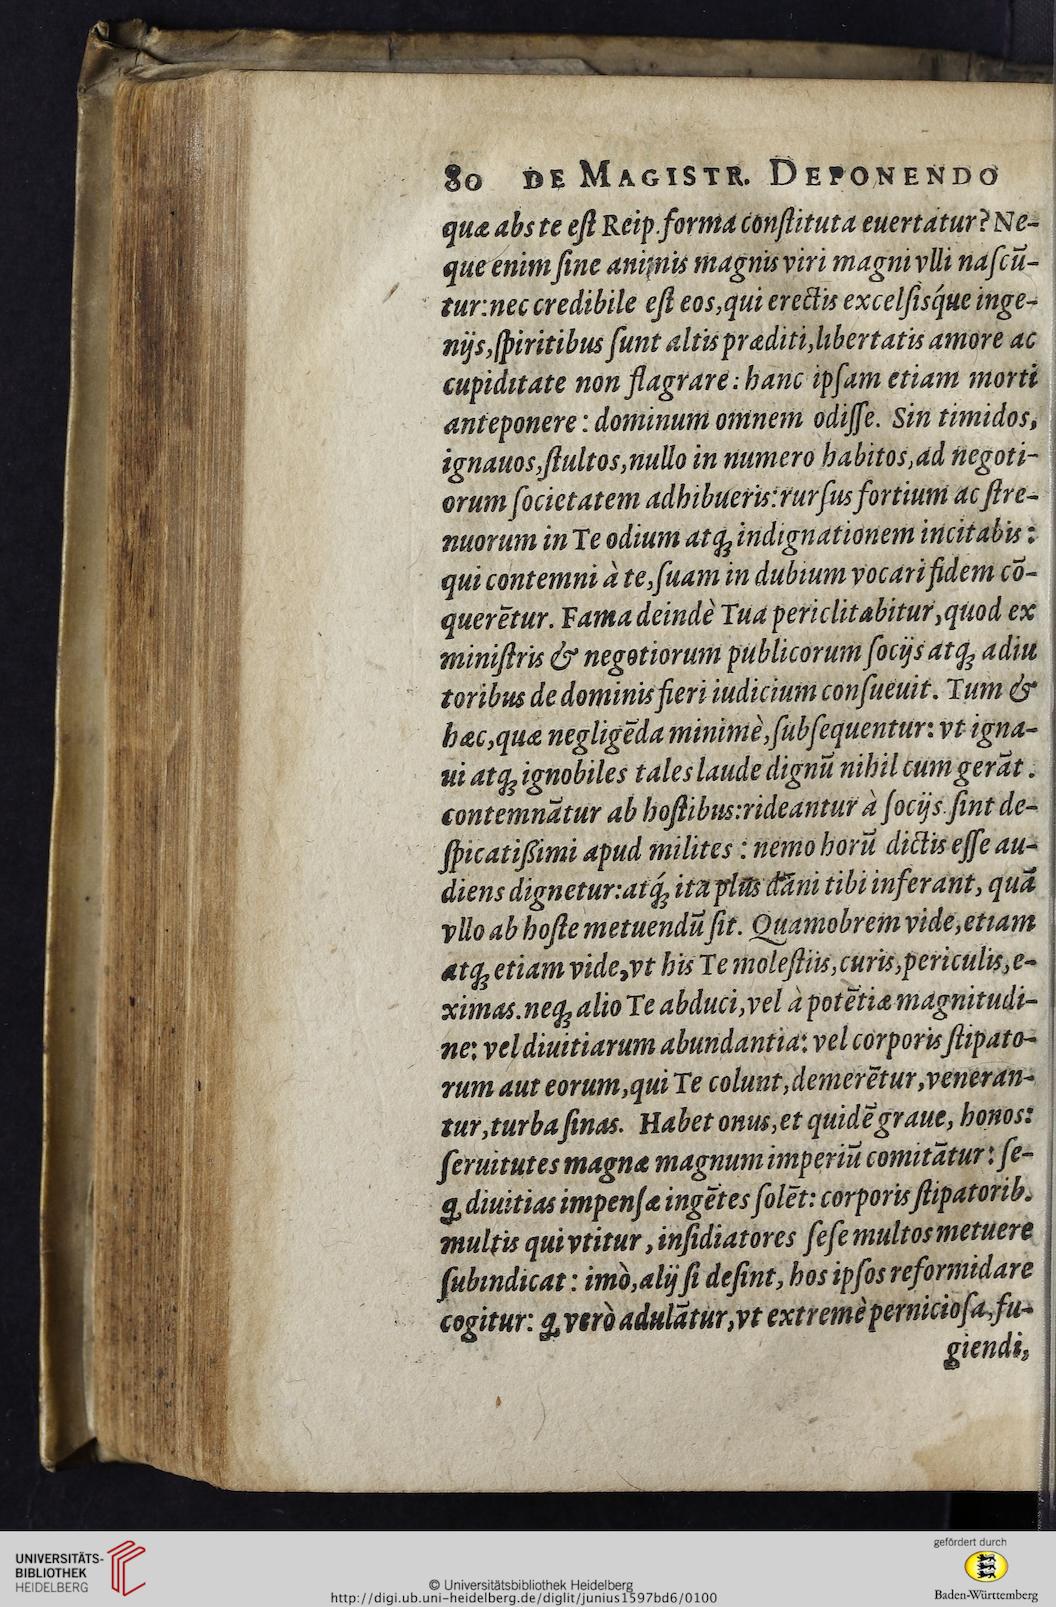 80 DE MAGISTR. DEPONENDO
quæ abs te eſt Reip. forma conſtituta euertatur? Ne-
que enim ſine animis magnis viri magni vlli naſcū-
tur: nec credibile eſt eos, qui erectis excelſisq́ue inge-
nijs, ſpiritibus ſunt altis præditi, libertatis amore ac
cupiditate non flagrare: hanc ipſam etiam morti
anteponere: dominum omnem odiſſe. Sin timidos,
ignauos, ſtultos, nullo in numero habitos, ad negoti-
orum ſocietatem adhibueris: rurſus fortium ac ſtre-
nuorum in Te odium atq; indignationem incitabis:
qui contemni à te, ſuam in dubium vocari fidem cō-
querētur. Fama deindè Tua periclitabitur, quod ex
miniſtris & negotiorum publicorum ſocijs atq; adiu
toribus de dominis fieri iudicium conſueuit. Tum &
hæc, quæ negligēda minimè, ſubſequentur: vt igna-
ui atq; ignobiles tales laude dignū nihil cum gerāt.
contemnātur ab hoſtibus: rideantur à ſocijs. ſint de-
ſpicatißimi apud milites: nemo horū dictis eſſe au-
diens dignetur: atq́; ita plus dāni tibi inferant, quā
vllo ab hoſte metuendū ſit. Quamobrem vide, etiam
atq; etiam vide, vt his Te moleſtiis, curis, periculis, e-
ximas. neq; alio Te abduci, vel à potētiæ magnitudi-
ne: vel diuitiarum abundantia: vel corporis ſtipato-
rum aut eorum, qui Te colunt, demerētur, veneran-
tur, turba ſinas. Habet onus, et quidē graue, honos:
ſeruitutes magnæ magnum imperiū comitātur: ſe-
q; diuitias impenſæ ingētes ſolēt: corporis ſtipatorib.
multis qui vtitur, inſidiatores ſeſe multos metuere
ſubindicat: imò, alij ſi deſint, hos ipſos reformidare
cogitur: q; verò adulātur, vt extremè pernicioſa, fu-
giendi,
UNIVERSITÄTS-
BIBLIOTHEK
HEIDELBERG
© Universitätsbibliothek Heidelberg
http://digi.ub.uni-heidelberg.de/diglit/junius1597bd6/0100
gefördert durch
Baden-Württemberg